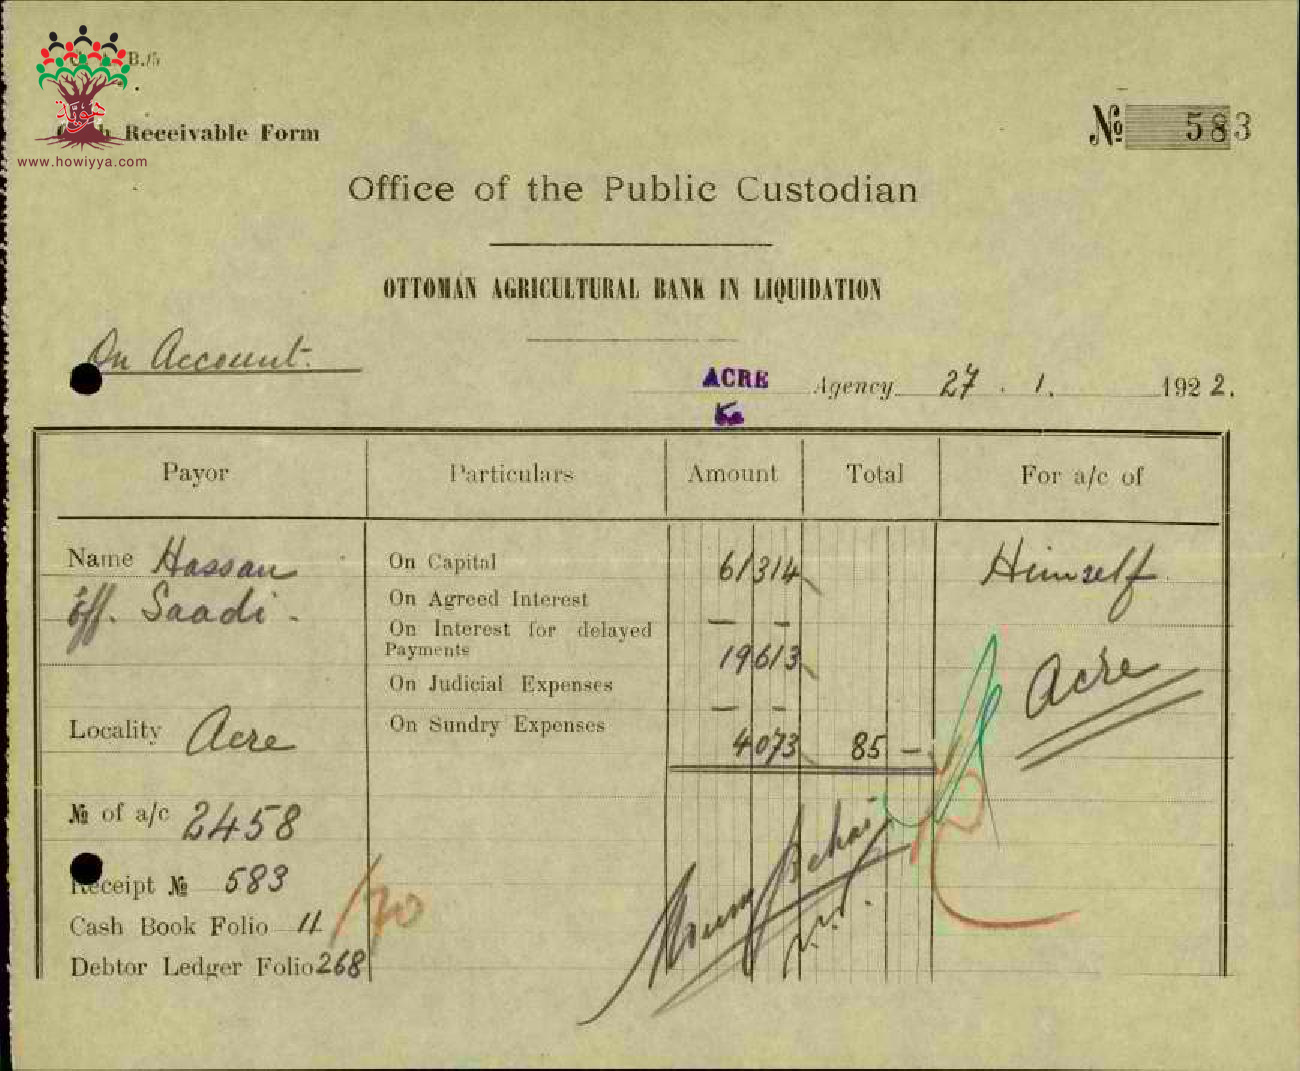 B.15
هوية
www.howiyya.com
Receivable Form
№ 583
Office of the Public Custodian
OTTOMAN AGRICULTURAL BANK IN LIQUIDATION
On Account.
ACRE Agency 27 . 1. 1922.
Payor Particulars Amount Total For a/c of
Name Hassan On Capital 61 314 Himself
On Agreed Interest —  —
eff. Saadi - On Interest for delayed Payments 19 613
On Judicial Expenses —  — Acre
Locality Acre On Sundry Expenses 4 073 85 —
№ of a/c 2458
Receipt № 583
Cash Book Folio 11 /70
Debtor Ledger Folio 268